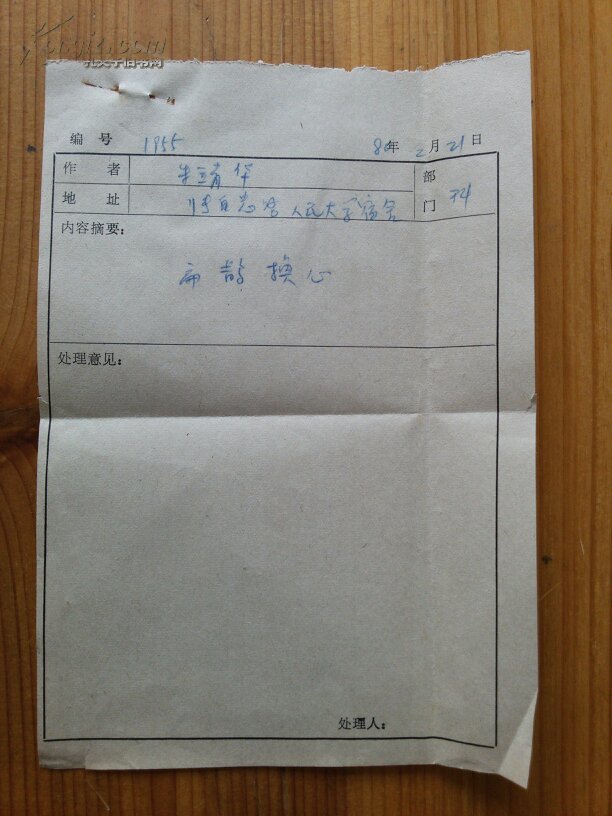 孔夫子旧书网
编号 1955 80年2月21日
作者 朱靖华
部门
地址 自忠路人民大学宿舍
内容摘要：
扁鹊换心
处理意见：
处理人：